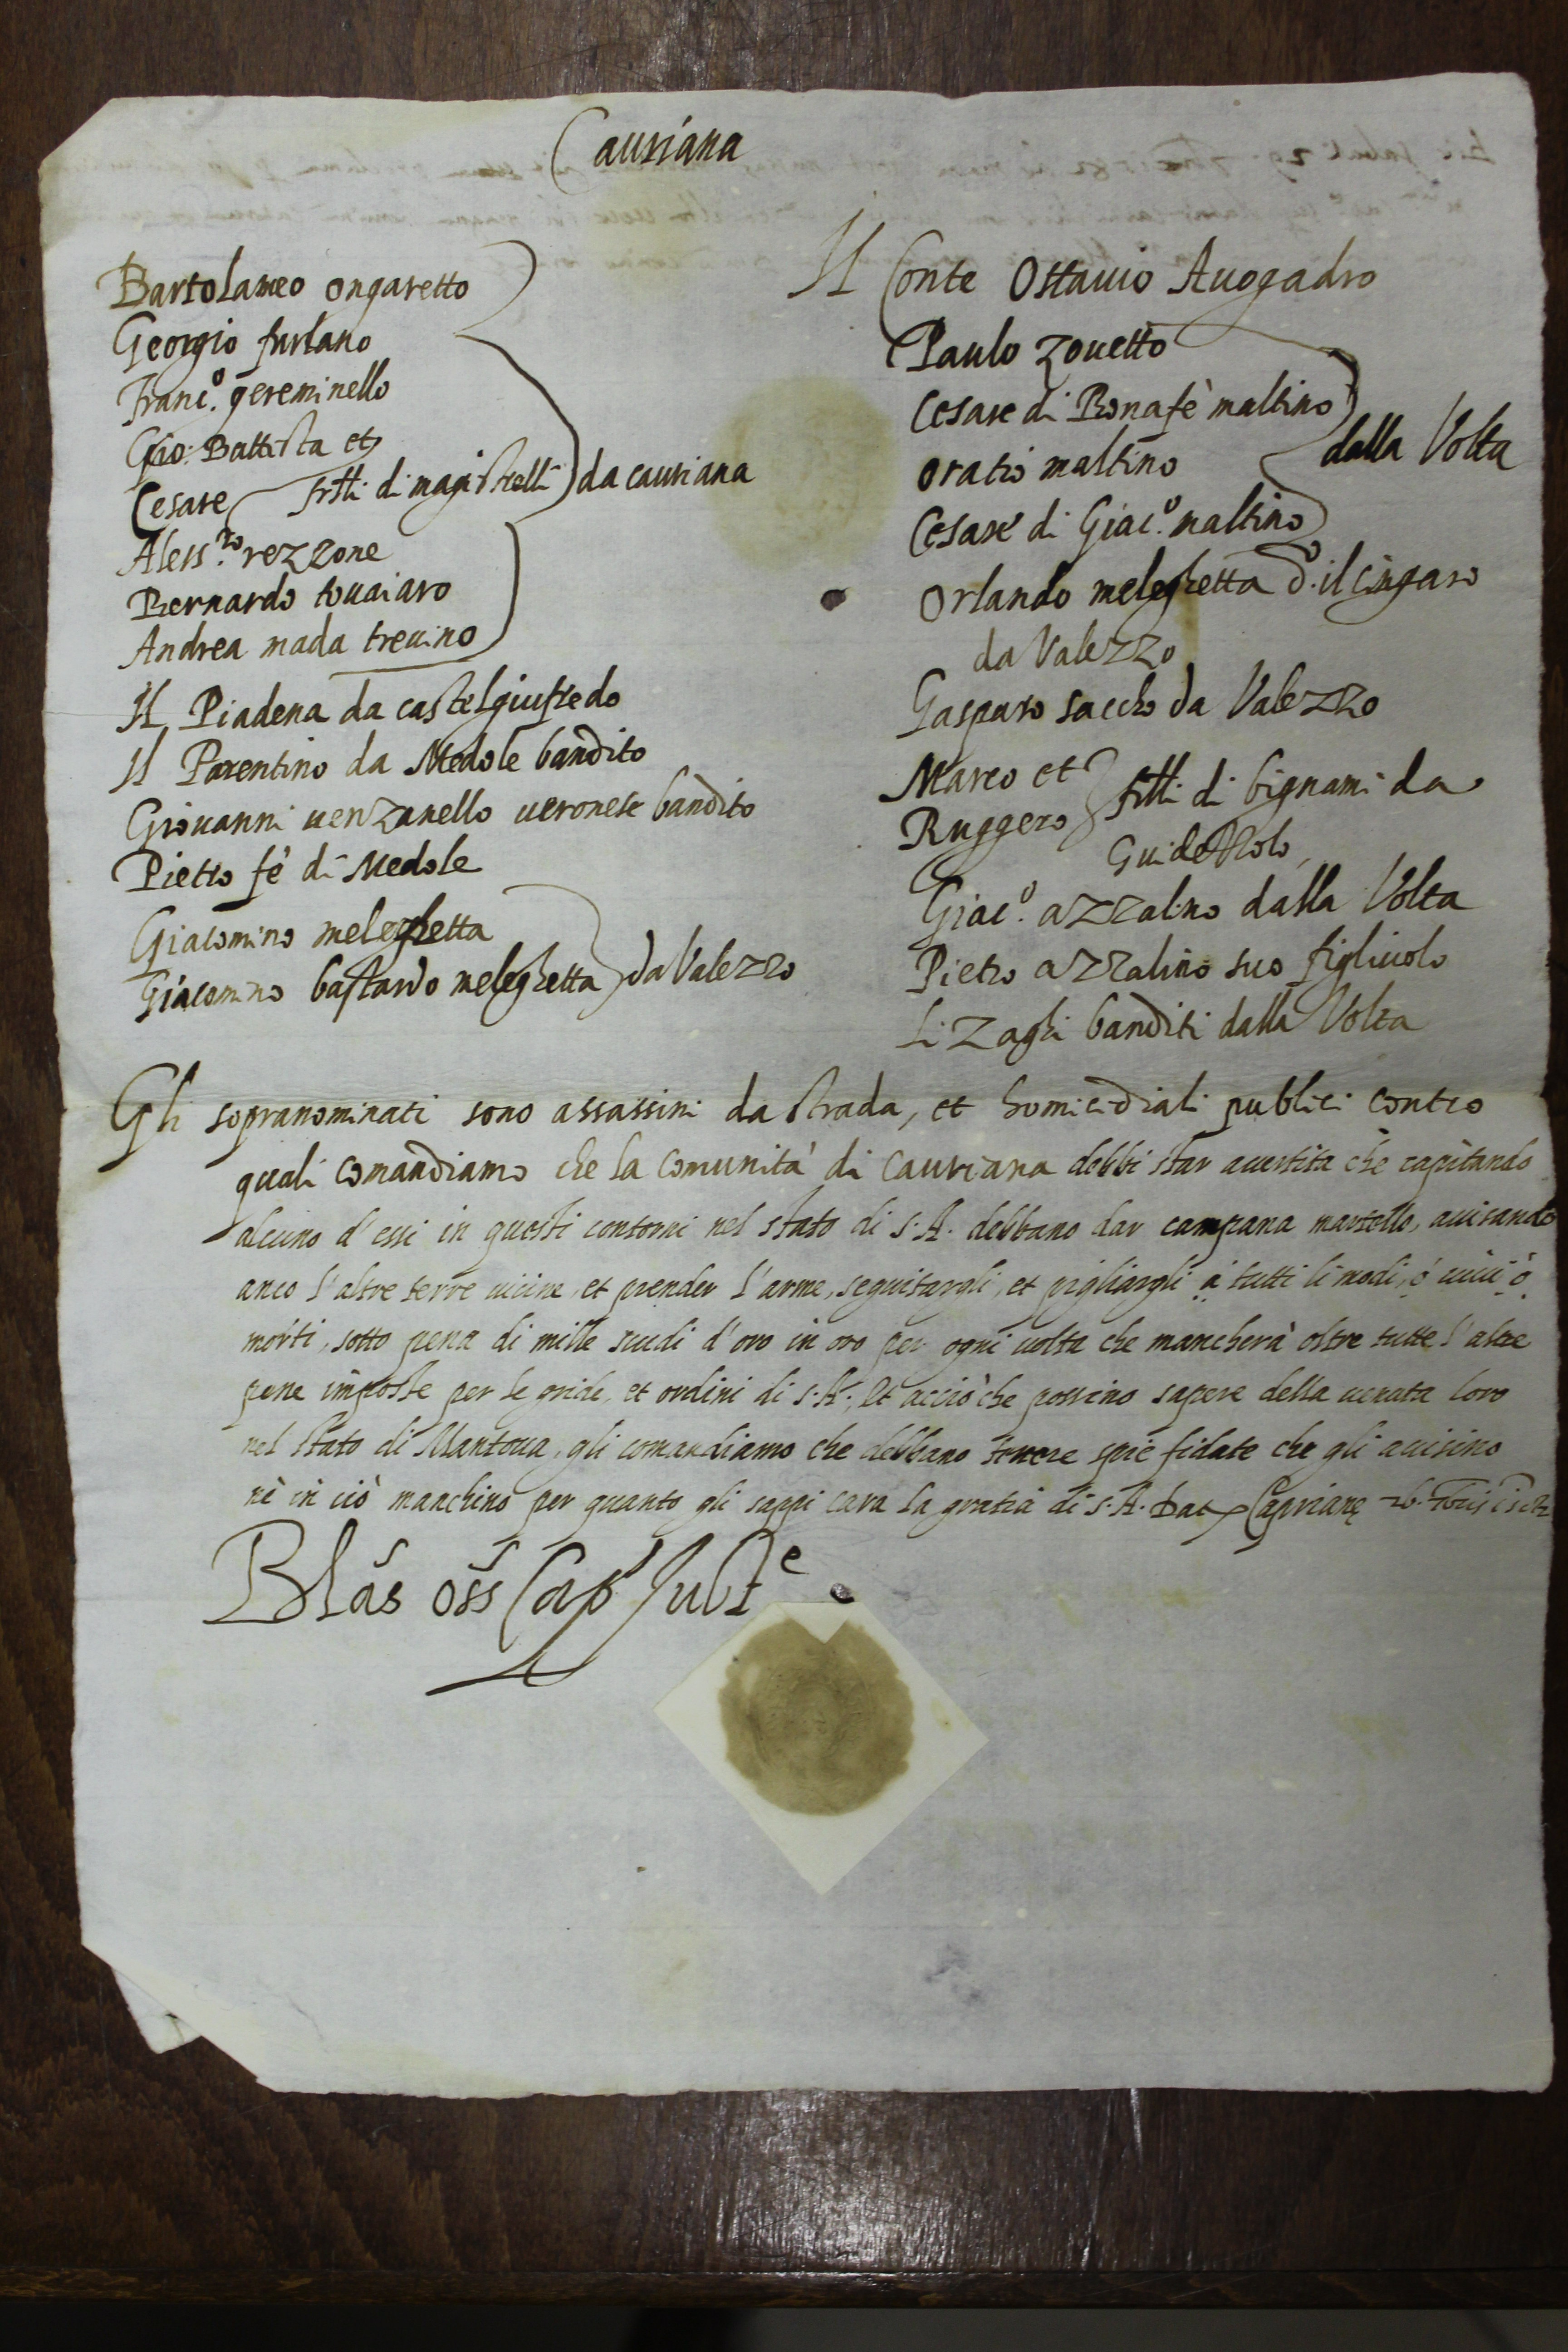 Cauriana
Bartolameo ongaretto
Georgio furlano
Franc.º gereminello
Gio: Battista et
Cesare frtti di magistrelli da cauriana
Aless.ro rezzone
Bernardo tovaiaro
Andrea mada trevino
Il Piadena da castelgiufredo
Il Parentino da Medole bandito
Giovanni venzanello veronese bandito
Pietro fè di Medole
Giacomino meleghetta
Giacomino bastardo meleghetta da Valezzo
Il Conte Ottavio Avogadro
Paulo zovetto
Cesare di Bonafè maltino
dalla Volta
oratio maltino
Cesare di Giac.º maltino
Orlando meleghetta d.º il cingaro
da Valezzo
Gasparo saccho da Valezzo
Marco et
Ruggero frtti di bignami da
Guidezzolo
Giac.º azzalino dalla Volta
Pietro azzalino suo figliuolo
Li Zaghi banditi dalla Volta
Gli sopranominati sono assassini da strada, et homicidiali publici contro
quali comandiamo che la Comunità di Cauriana debbi star avertita che capitando
alcuno d'essi in questi contorni nel stato di S.A. debbano dar campana martello, avisando
anco l'altre terre vicine, et prender l'arme, seguitargli, et pigliargli à tutti li modi, ò vivi ò
morti, sotto pena di mille scudi d'oro in oro per ogni volta che mancherà oltre tutte l'altre
pene imposte per le gride, et ordini di S.A., Et acciò che possino sapere della venuta loro
nel stato di Mantova, gli comandiamo che debbano tenere spie fidate che gli avisino
nè in ciò manchino per quanto gli sappi cara la gratia di S.A. Dat Caprianę